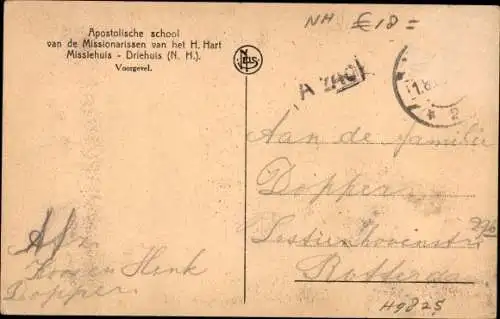 Apostolische school
van de Missionarissen van het H. Hart
Missiehuis - Driehuis (N. H.).
Voorgevel.
NELS
NH €18=
Aan de familie
Dopper
Rotterda
Afz
Koos en Henk
Dopper
H9825